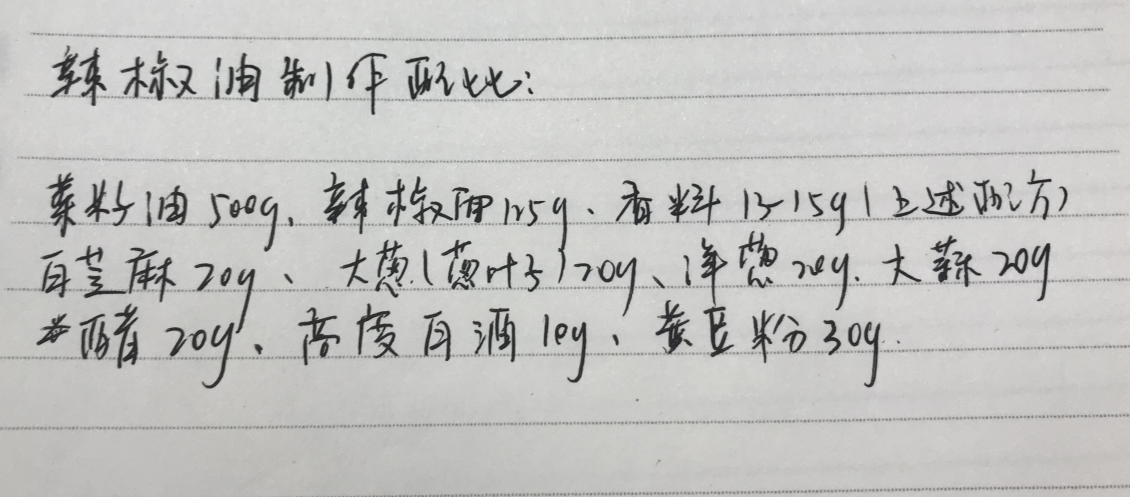 辣椒油制作配比:
菜籽油500g、辣椒面125g、香料13-15g(上述配方)
白芝麻20g、大葱(葱叶子)20g、洋葱20g、大蒜20g
醋20g、高度白酒10g、黄豆粉30g.